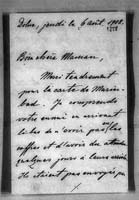 Dolon, jeudi le 6 août, 1908.
Bien chère Maman,
Merci tendrement
pour la carte de Marien-
bad. Je comprends
votre ennui en arrivant
là-bas de n'avoir pas les
coffres et d'avoir dû attendre
quelques jours à leurs arrivée.
Ils étaient pas envoyés par